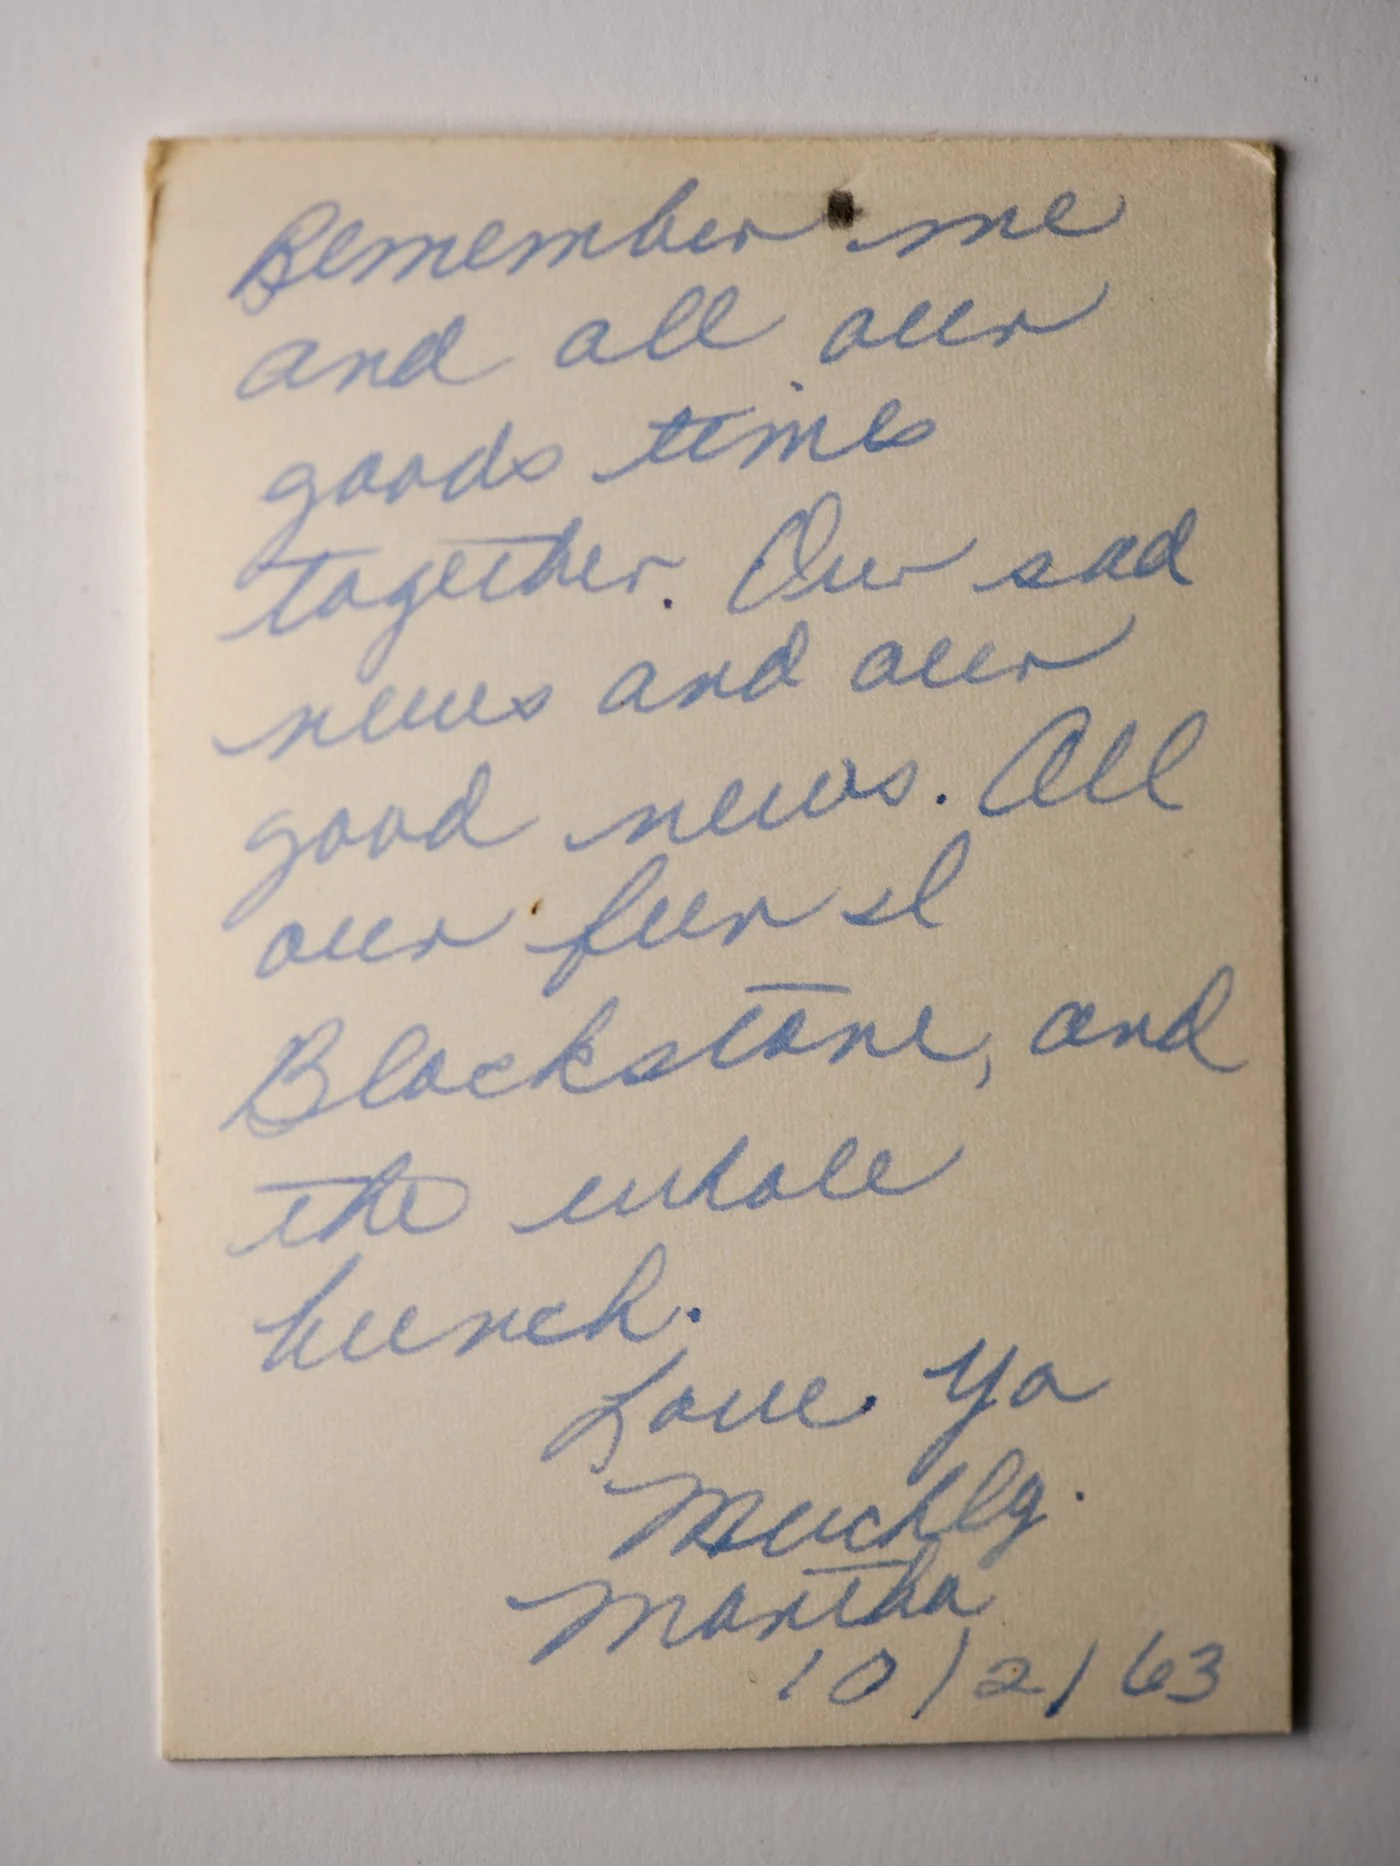 Remember me
and all our
goods times
together. Our sad
news and our
good news. All
our fun
Blackstone, and
the whole
bunch.
Love Ya
Muchly.
Martha
10/2/63